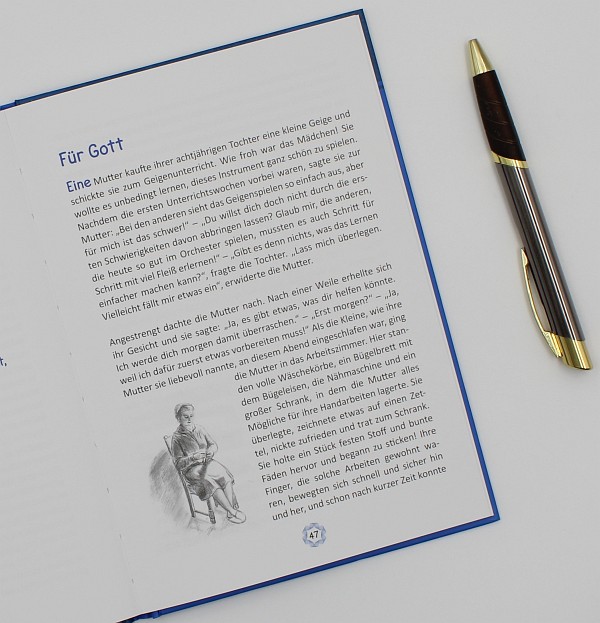 Für Gott
Eine Mutter kaufte ihrer achtjährigen Tochter eine kleine Geige und
schickte sie zum Geigenunterricht. Wie froh war das Mädchen! Sie
wollte es unbedingt lernen, dieses Instrument ganz schön zu spielen.
Nachdem die ersten Unterrichtswochen vorbei waren, sagte sie zur
Mutter: „Bei den anderen sieht das Geigenspielen so einfach aus, aber
für mich ist das schwer!“ – „Du willst dich doch nicht durch die ers-
ten Schwierigkeiten davon abbringen lassen? Glaub mir, die anderen,
die heute so gut im Orchester spielen, mussten es auch Schritt für
Schritt mit viel Fleiß erlernen!“ – „Gibt es denn nichts, was das Lernen
einfacher machen kann?“, fragte die Tochter. „Lass mich überlegen.
Vielleicht fällt mir etwas ein“, erwiderte die Mutter.
Angestrengt dachte die Mutter nach. Nach einer Weile erhellte sich
ihr Gesicht und sie sagte: „Ja, es gibt etwas, was dir helfen könnte.
Ich werde dich morgen damit überraschen.“ – „Erst morgen?“ – „Ja,
weil ich dafür zuerst etwas vorbereiten muss!“ Als die Kleine, wie ihre
Mutter sie liebevoll nannte, an diesem Abend eingeschlafen war, ging
die Mutter in das Arbeitszimmer. Hier stan-
den volle Wäschekörbe, ein Bügelbrett mit
dem Bügeleisen, die Nähmaschine und ein
großer Schrank, in dem die Mutter alles
Mögliche für ihre Handarbeiten lagerte. Sie
überlegte, zeichnete etwas auf einen Zet-
tel, nickte zufrieden und trat zum Schrank.
Sie holte ein Stück festen Stoff und bunte
Fäden hervor und begann zu sticken! Ihre
Finger, die solche Arbeiten gewohnt wa-
ren, bewegten sich schnell und sicher hin
und her, und schon nach kurzer Zeit konnte
47